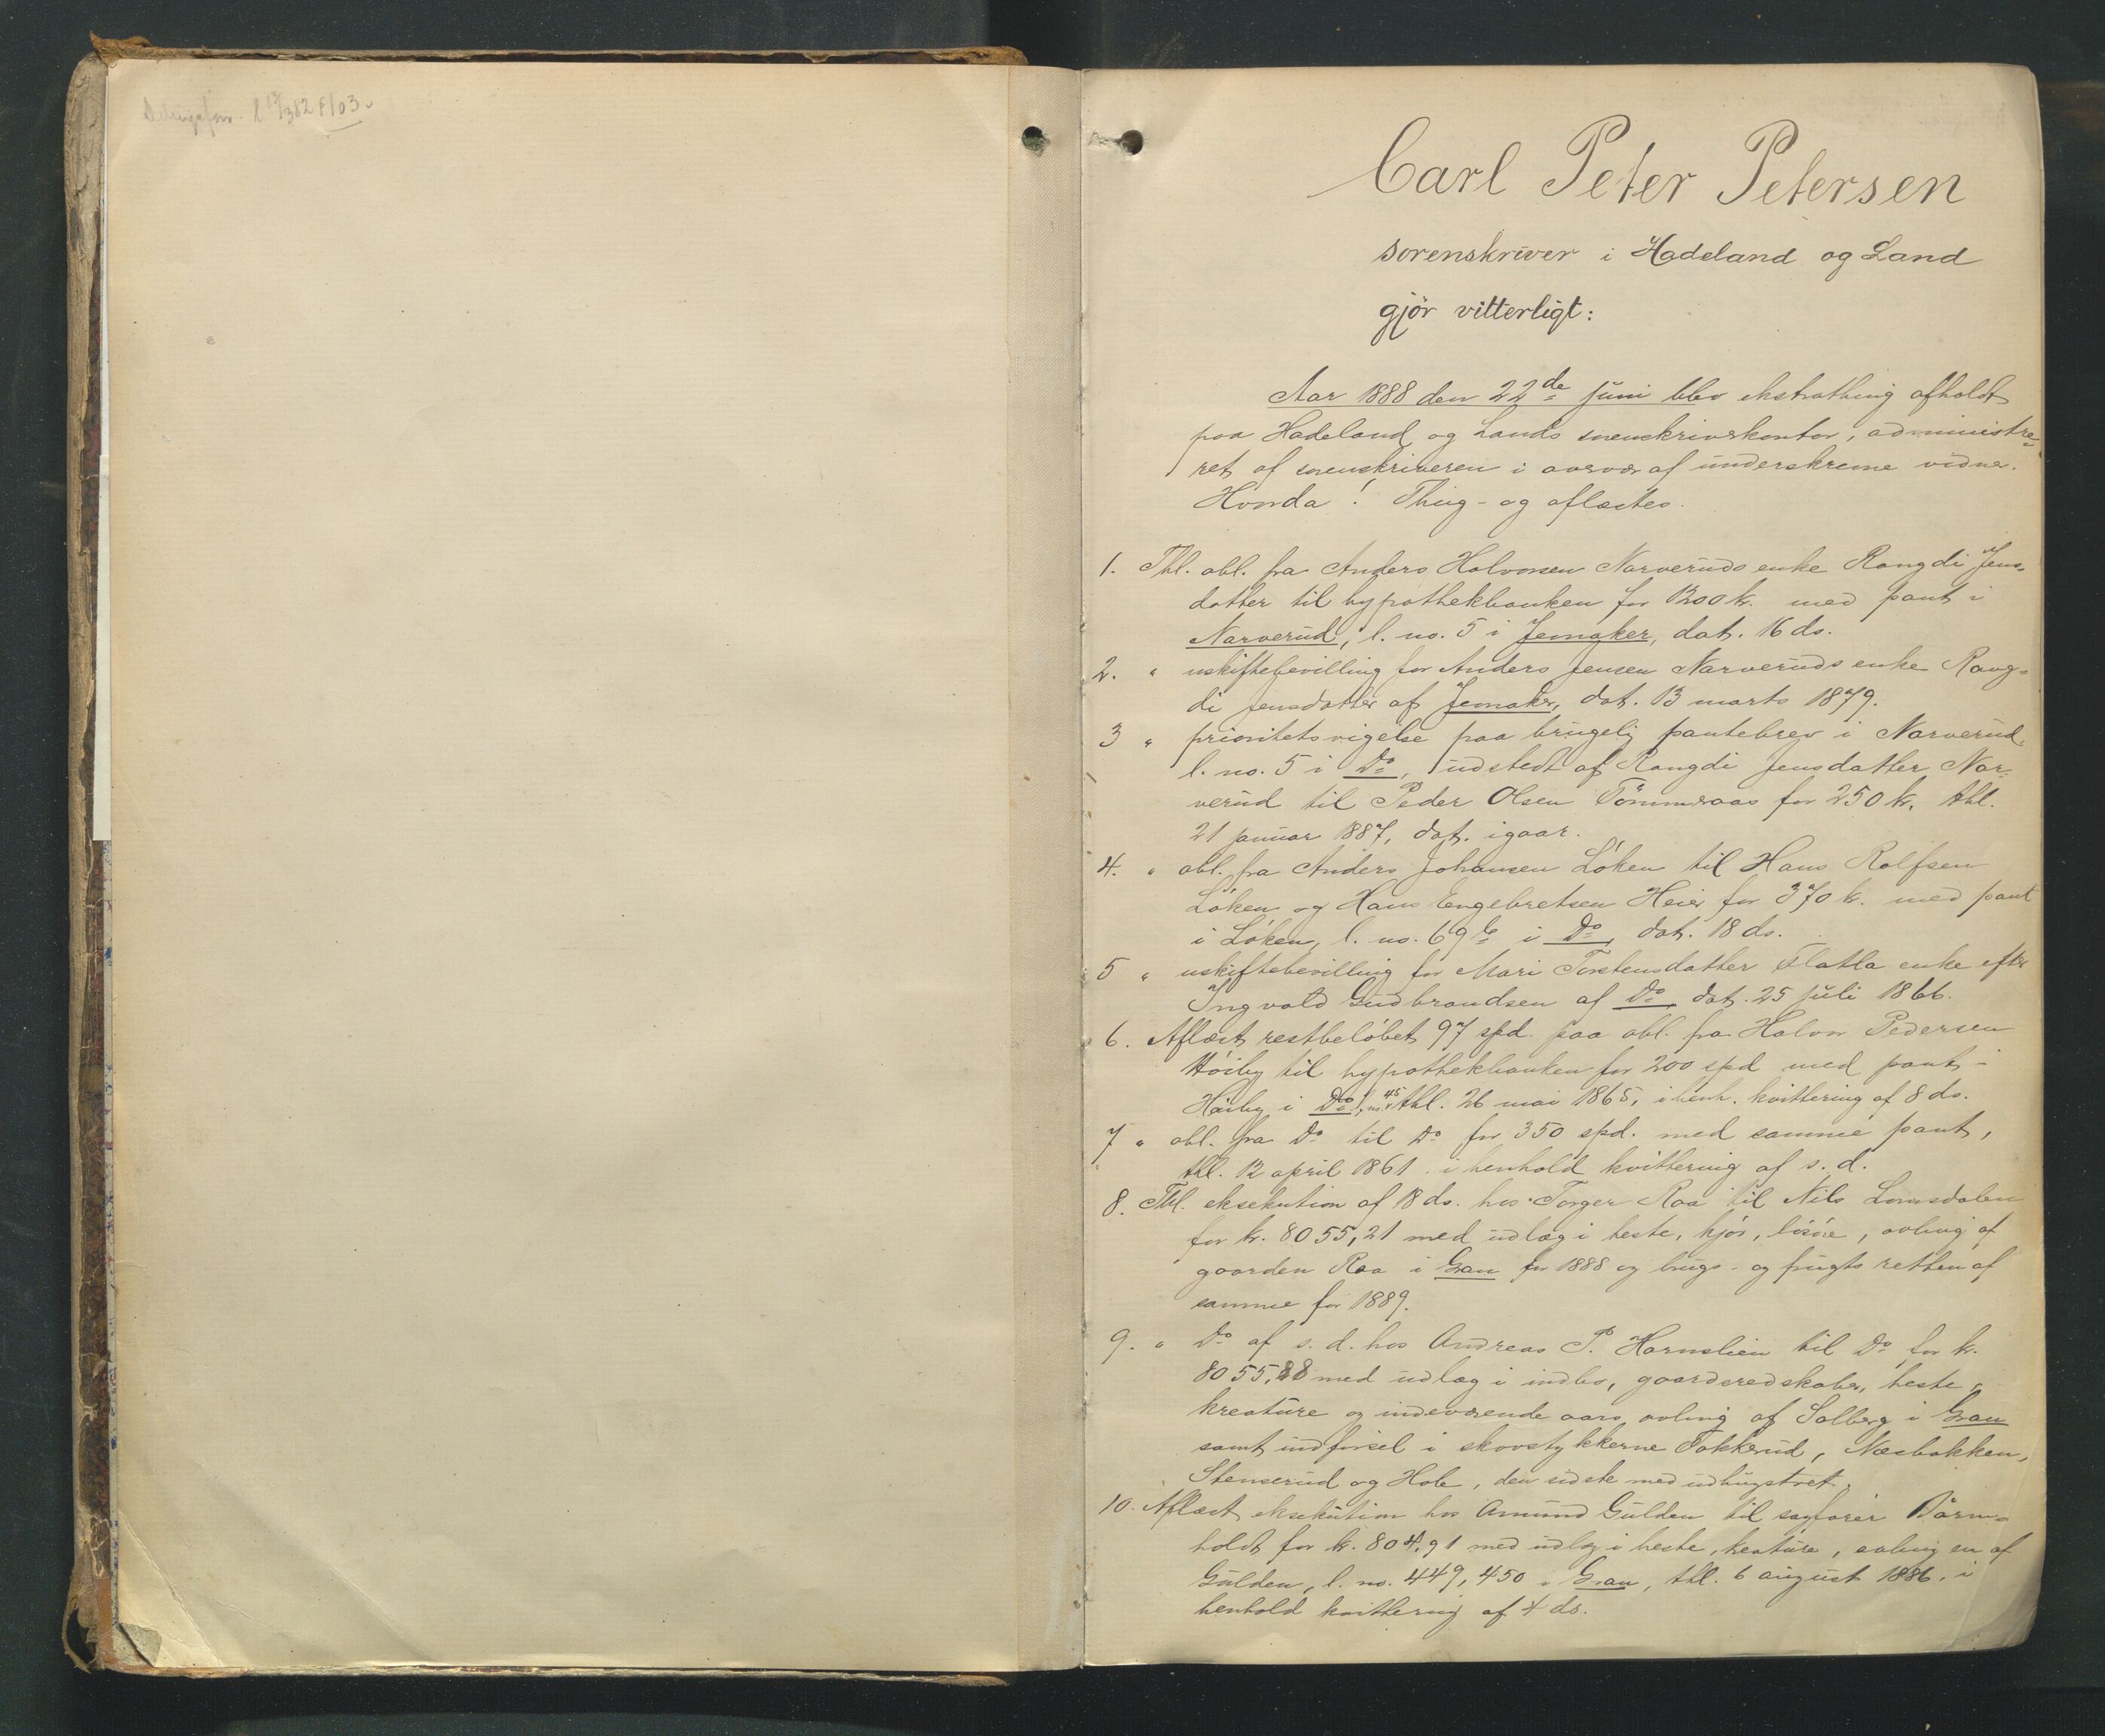 Carl Peter Petersen
sorenskriver i Hadeland og Land
gjör vitterligt:
Aar 1888 den 22de juni blev ekstrathing afholdt
paa Hadeland og Lands sorenskriverkontor, administre-
ret af sorenskriveren i overvær af underskrevne vidner.
Hvorda! Thing- og aflæstes
1. Thl. obl. fra Anders Halvorsen Narveruds enke Rangdi Jens-
datter til hypothekbanken for 1200 kr. med pant i
Narverud, l. no. 5 i Jevnaker, dat. 16 ds.
2. " uskiftebevilling for Anders Jensen Narveruds enke Rang-
di Jensdatter af Jevnaker, dat. 13 marts 1879.
3 " prioritetsvigelse paa brugelig pantebrev i Narverud
l. no. 5 i Do, udstedt af Rangdi Jensdatter Nar-
verud til Peder Olsen Tömmeraas for 250 kr. thl.
21 januar 1887, dat. igaar.
4. " obl. fra Anders Johansen Löken til Hans Rolfsen
Löken og Hans Engebretsen Heier for 370 kr. med pant
i Löken, l. no. 69 b i Do, dat. 18 ds.
5 " uskiftebevilling for Mari Torstensdatter Flatla enke efter
Ingvald Gudbrandsen af Do dat. 25 juli 1866.
6. Aflæst restbelöbet 97 spd. paa obl. fra Halvor Pedersen
Höiby til hypothekbanken for 200 spd med pant i
Höiby i Do, l. no. 45 thl. 26 mai 1865, i henh. kvittering af 8 ds.
7 " obl. fra Do til Do for 350 spd. med samme pant,
thl. 12 april 1861 i henhold kvittering af s. d.
8. Thl. eksekution af 18 ds. hos Torger Raa til Nils Lomsdalen
for kr. 8055,21 med udlæg i heste, kjör, lösöre, avling af
gaarden Raa i Gran for 1888 og brugs- og frugts retten af
samme for 1889.
9. " Do af s. d. hos Andreas P. Hornslien til Do for kr.
8055,88 med udlæg i indbo, gaardsredskaber, heste,
kreature og indeværende aars avling af Solberg i Gran
samt indförsel i skovstykkerne Tokkerud, Næsbakken,
Stenserud og Hole, den sidste med udhugstret.
10. Aflæst eksekution hos Amund Gulden til sagförer
holdt for kr. 804,91 med udlæg i heste, kreature, avlingen af
Gulden, l. no. 449, 450 i Gran, thl. 6 august 1886, i
henhold kvittering af 4 ds.